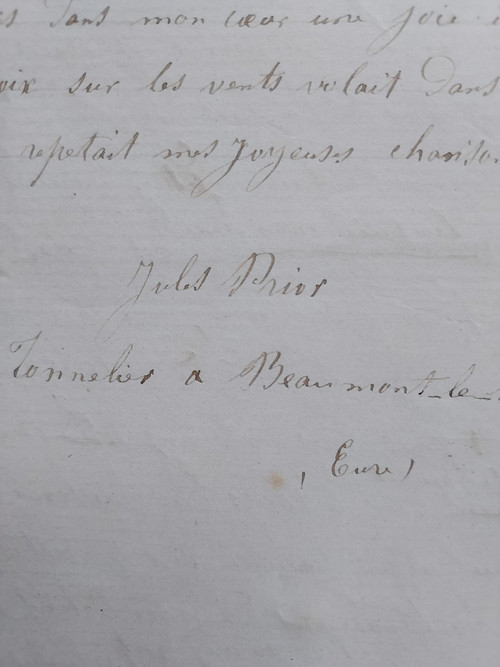 dans mon cœur une joie
sur les vents volait dans
repetait mes joyeuses chanso
Jules Prior
Tonnelier a Beaumont-le-
(Eure)